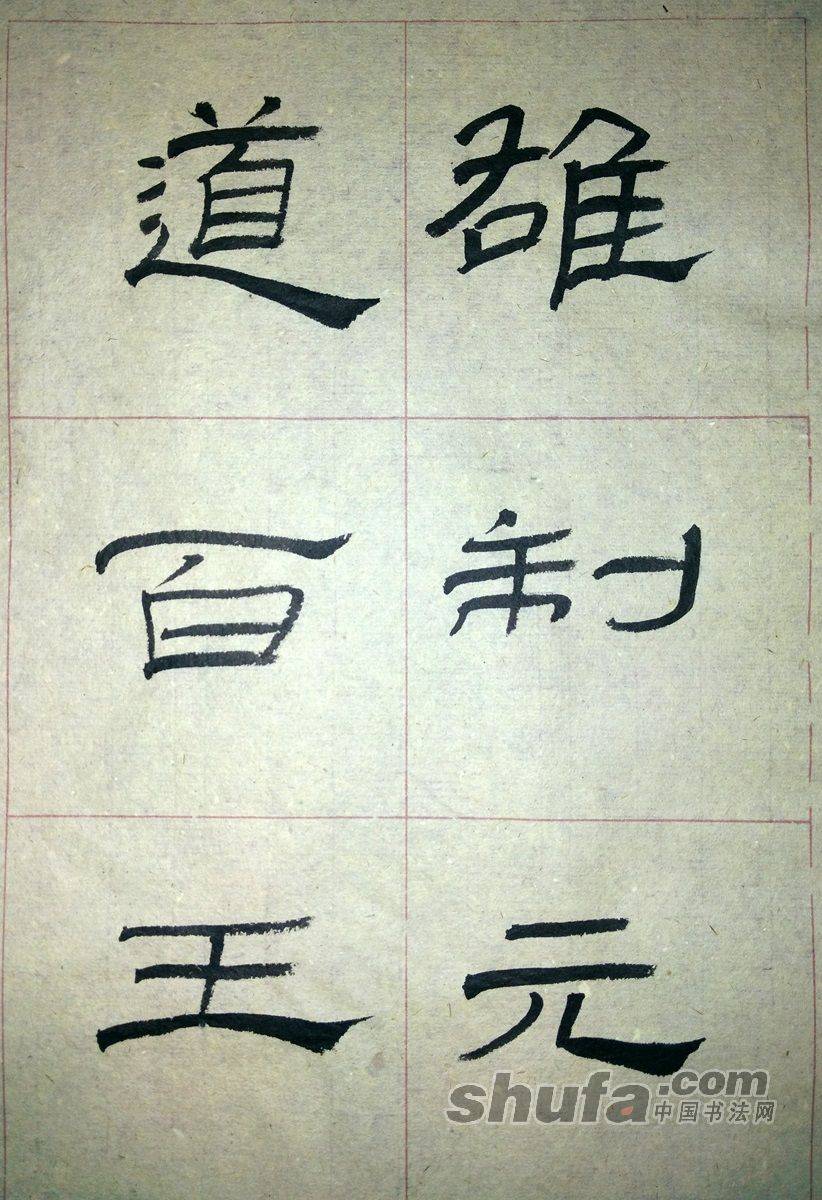 雒制元
道百王
shufa.com
中国书法网